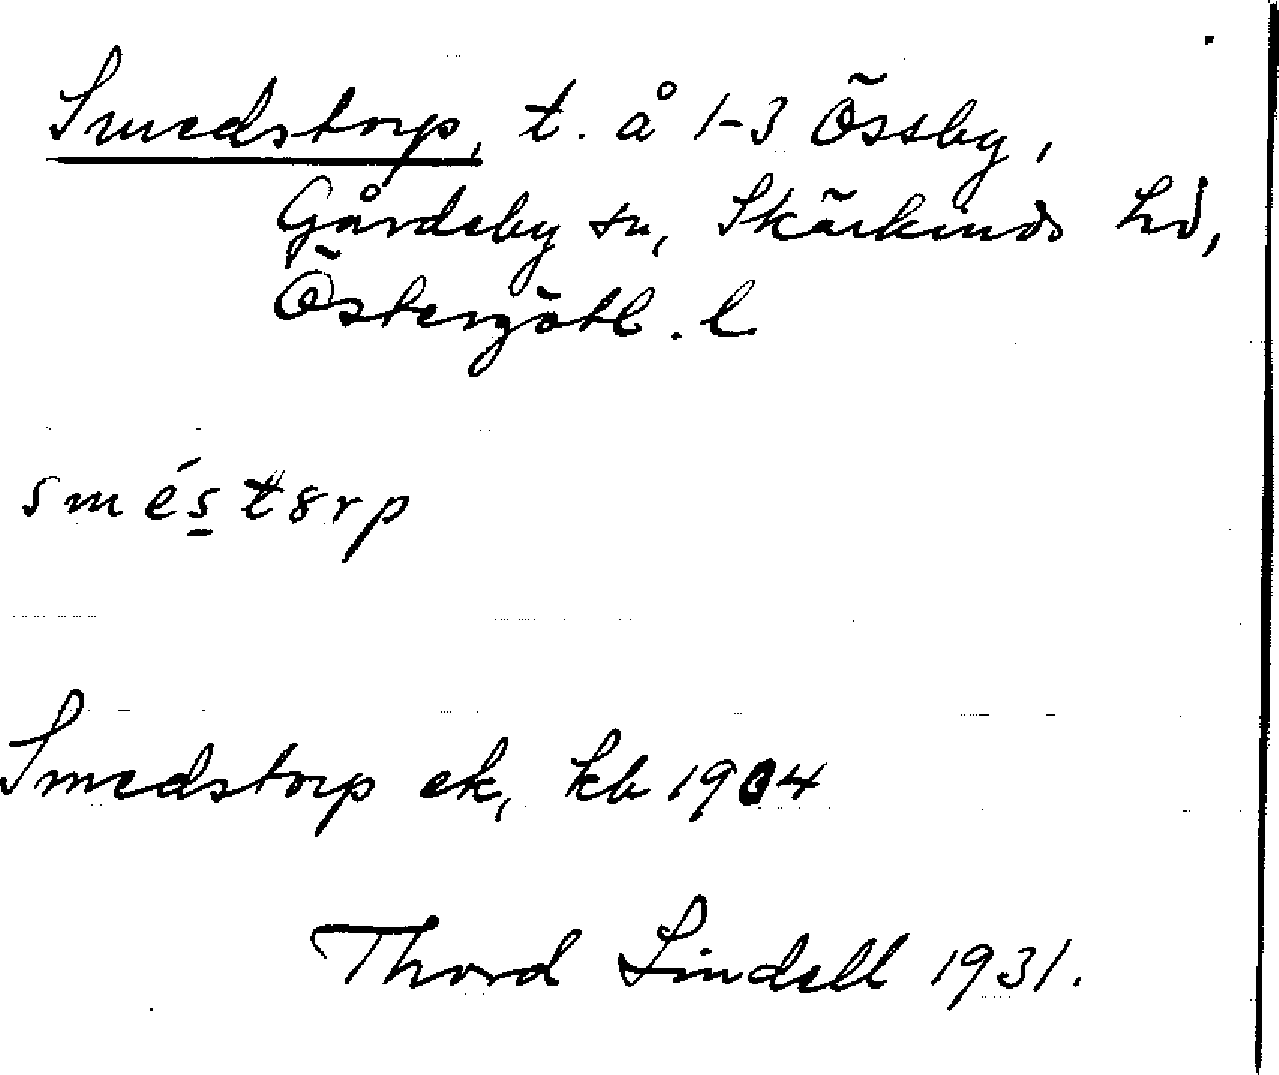 Smedstorp, t. å 1-3 Össby,
Gårdeby sn, Skärkinds hd,
Östergötl. l
sméstorp
Smedstorp ek, kb 1904
Thord Lindell 1931.